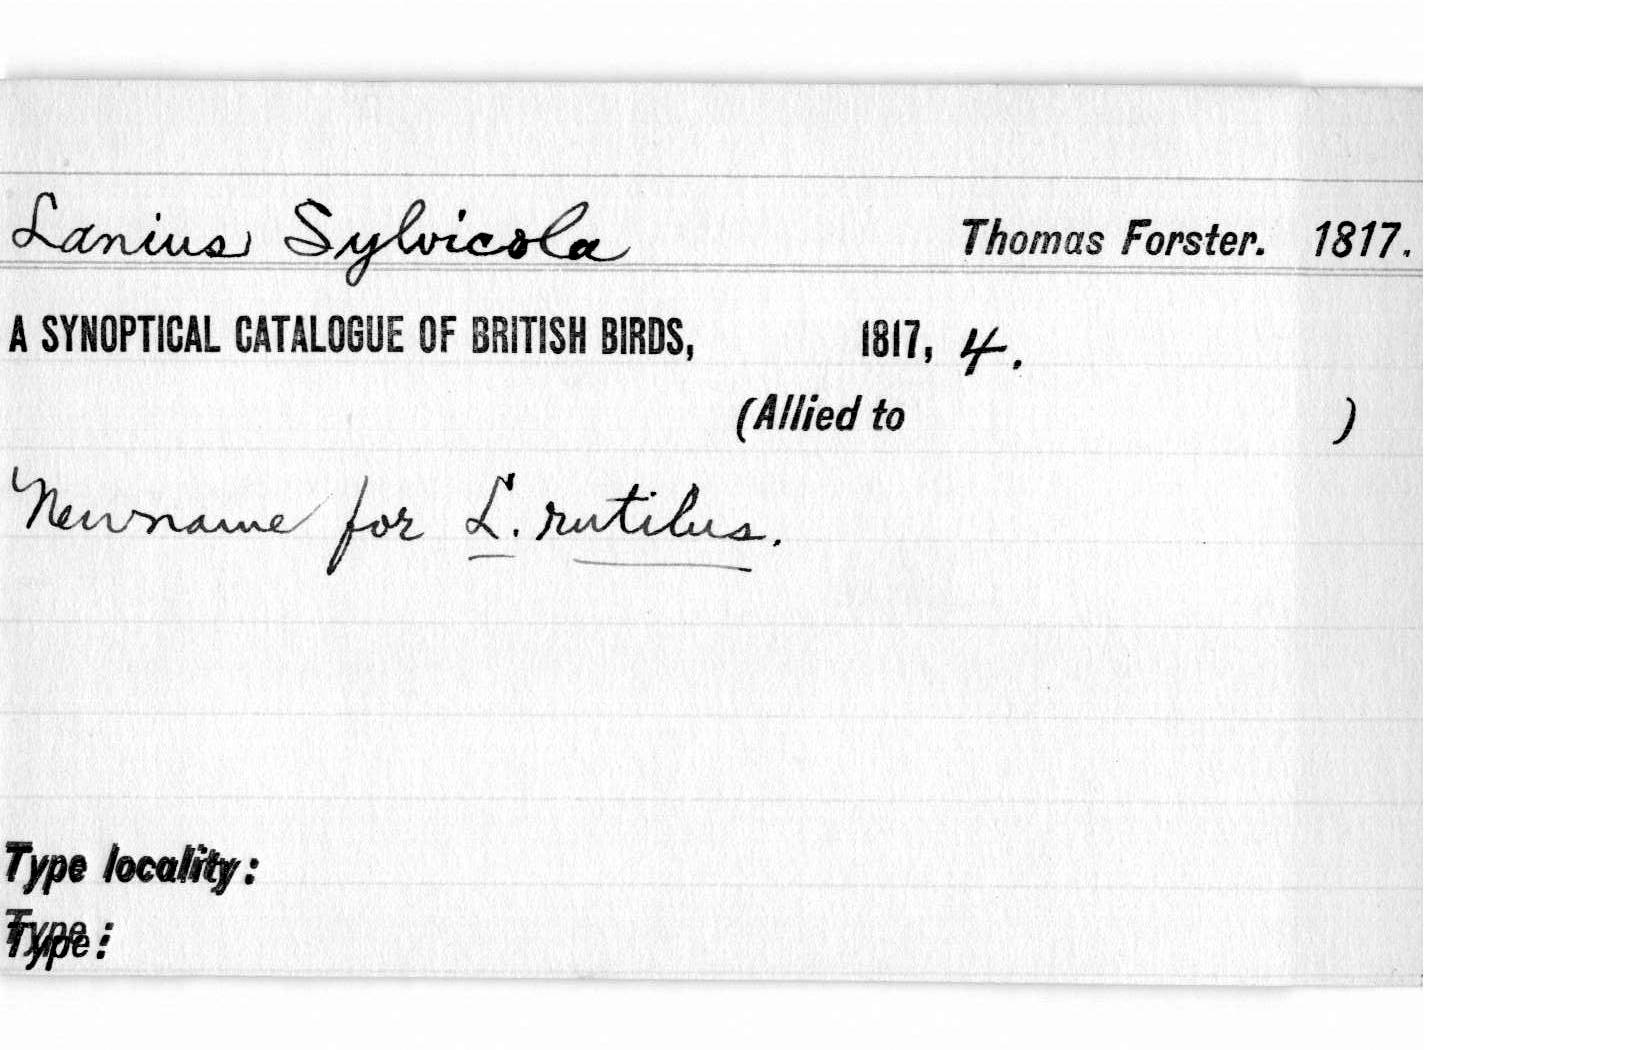 Lanius Sylvicola Thomas Forster. 1817.
A SYNOPTICAL CATALOGUE OF BRITISH BIRDS, 1817, 4.
(Allied to )
New name for L. rutilus.
Type locality:
Type: